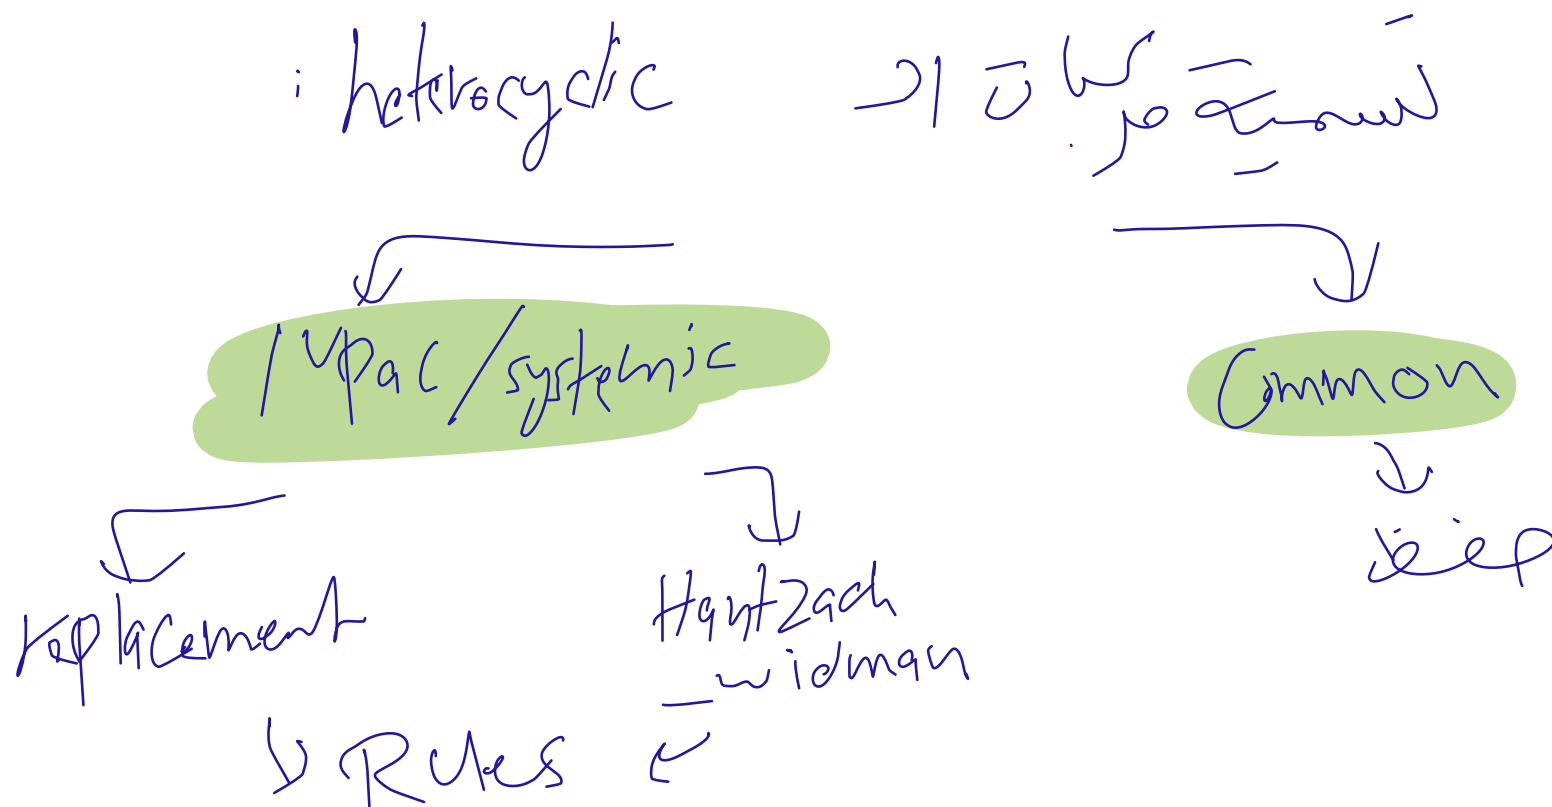 تسمية مركبات ال heterocyclic :
IUPac/systemic
Common
حفظ
replacement
Hantzach
_widman
Rules